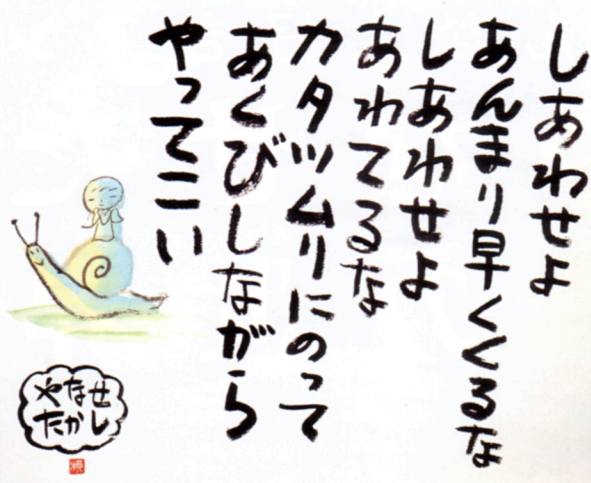 しあわせよ
あんまり早くくるな
しあわせよ
あわてるな
カタツムリにのって
あくびしながら
やってこい
やなせ
たかし